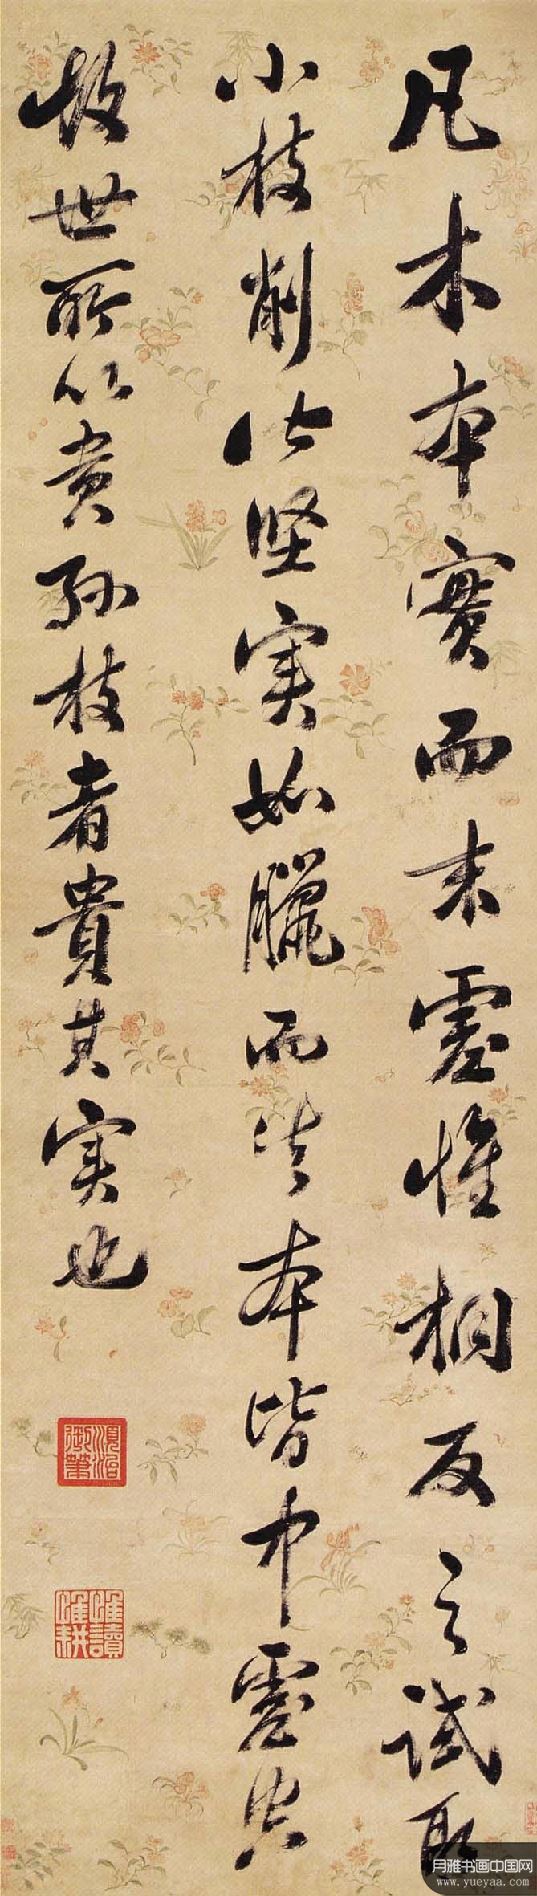 凡木本實而末虛惟桐反之試取
小枝削皆坚实如臘而其本皆中虛空
故世所以貴孫枝者貴其实也
順治御筆
月雅书画中国网
www.yueyaa.com